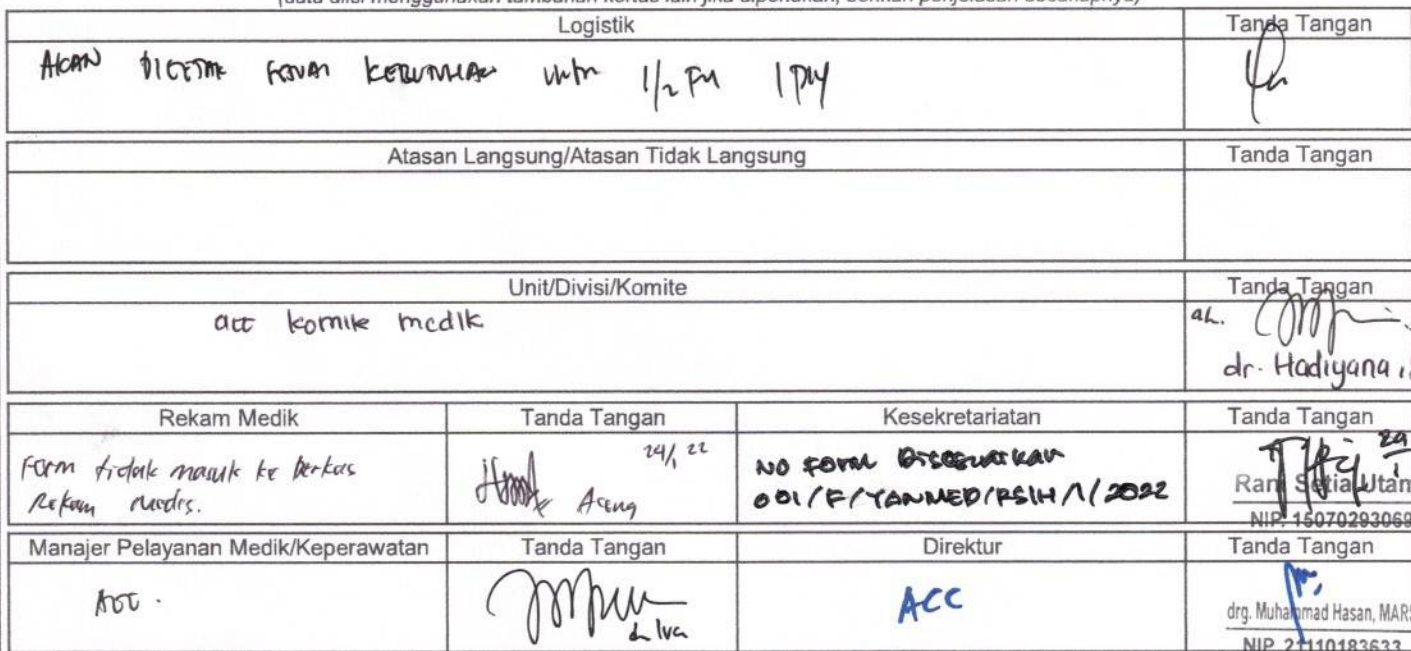 (data diisi menggunakan tambahan kertas lain jika diperlukan, berikan penjelasan secukupnya)
Logistik Tanda Tangan
AKAN DICETAK 1/2 1 PLY
Atasan Langsung/Atasan Tidak Langsung Tanda Tangan
Unit/Divisi/Komite Tanda Tangan
acc komite medik
an.
dr. Hadiyana
Rekam Medik Tanda Tangan Kesekretariatan Tanda Tangan
Form tidak masuk ke berkas
Rekam Medis.
24/1 22
Aceng
NO FORM DISESUAIKAN
001/F/YANMED/RSIH/I/2022
Rani Setia Utam
NIP. 15070293069
Manajer Pelayanan Medik/Keperawatan Tanda Tangan Direktur Tanda Tangan
ACC.
dr Iva
ACC
drg. Muhammad Hasan, MARS
NIP. 21110183633